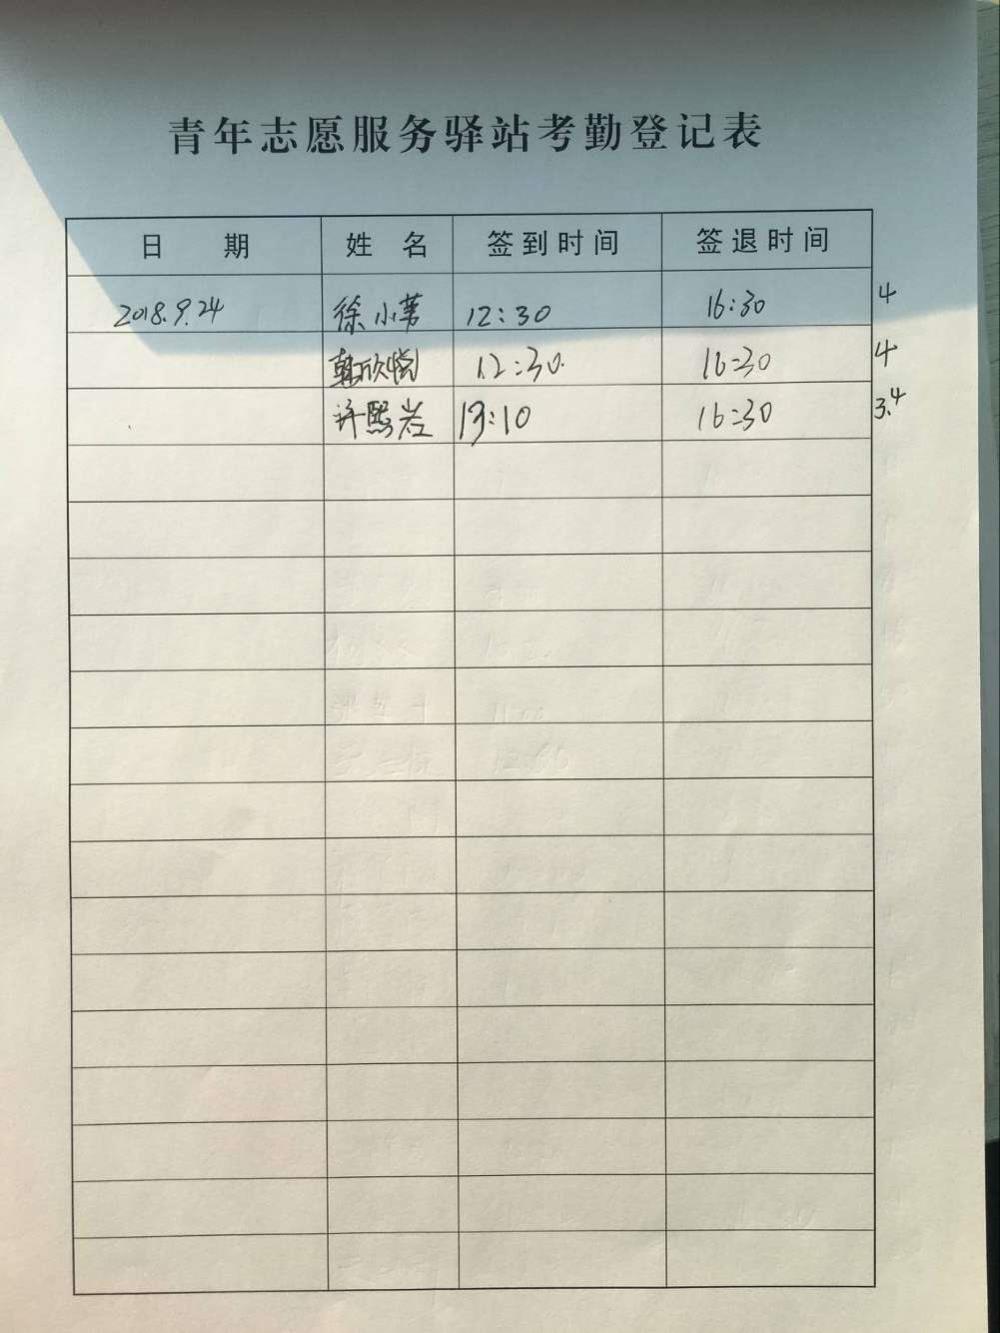 青年志愿服务驿站考勤登记表
日期 姓名 签到时间 签退时间
2018.9.24 徐小 12:30 16:30 4
韩欣悦 12:30 16:30 4
许熙岩 13:10 16:30 3.4